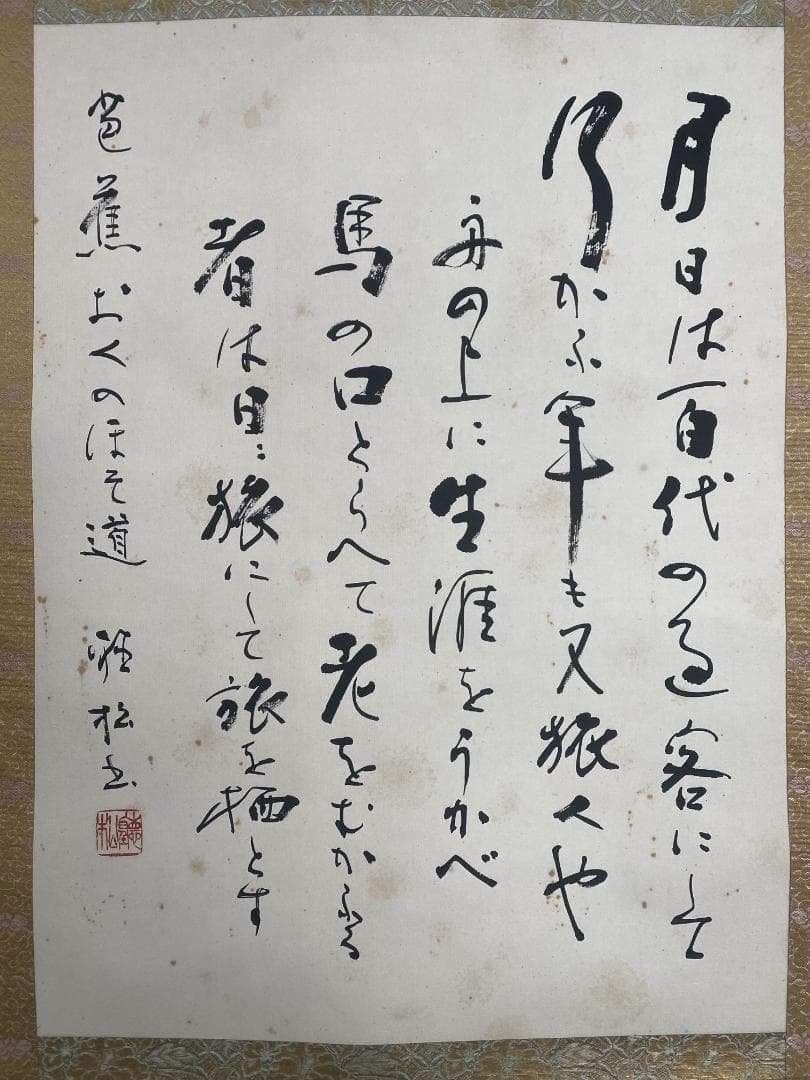 月日は百代の過客にして
行かふ年も又旅人也
舟の上に生涯をうかべ
馬の口とらへて老をむかふる
者は日ゝ旅にして旅を栖とす
芭蕉おくのほそ道 書